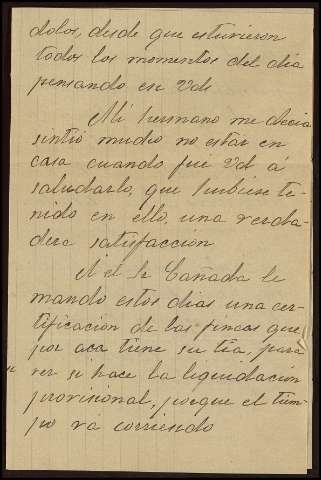 dolos, desde que estuvieron
todos los momentos del dia
pensando en Vds
Mi hermano me decia
sintió mucho no estar en
casa cuando fué Vd á
saludarlo, que hubiese te-
nido en ello, una verda-
dera satisfacción
Al Sr Cañada le
mando estos dias una cer-
tificación de las fincas que
por aca tiene su tia, para
ver si hace la liquidación
provisional, porque el tiem-
po vá corriendo